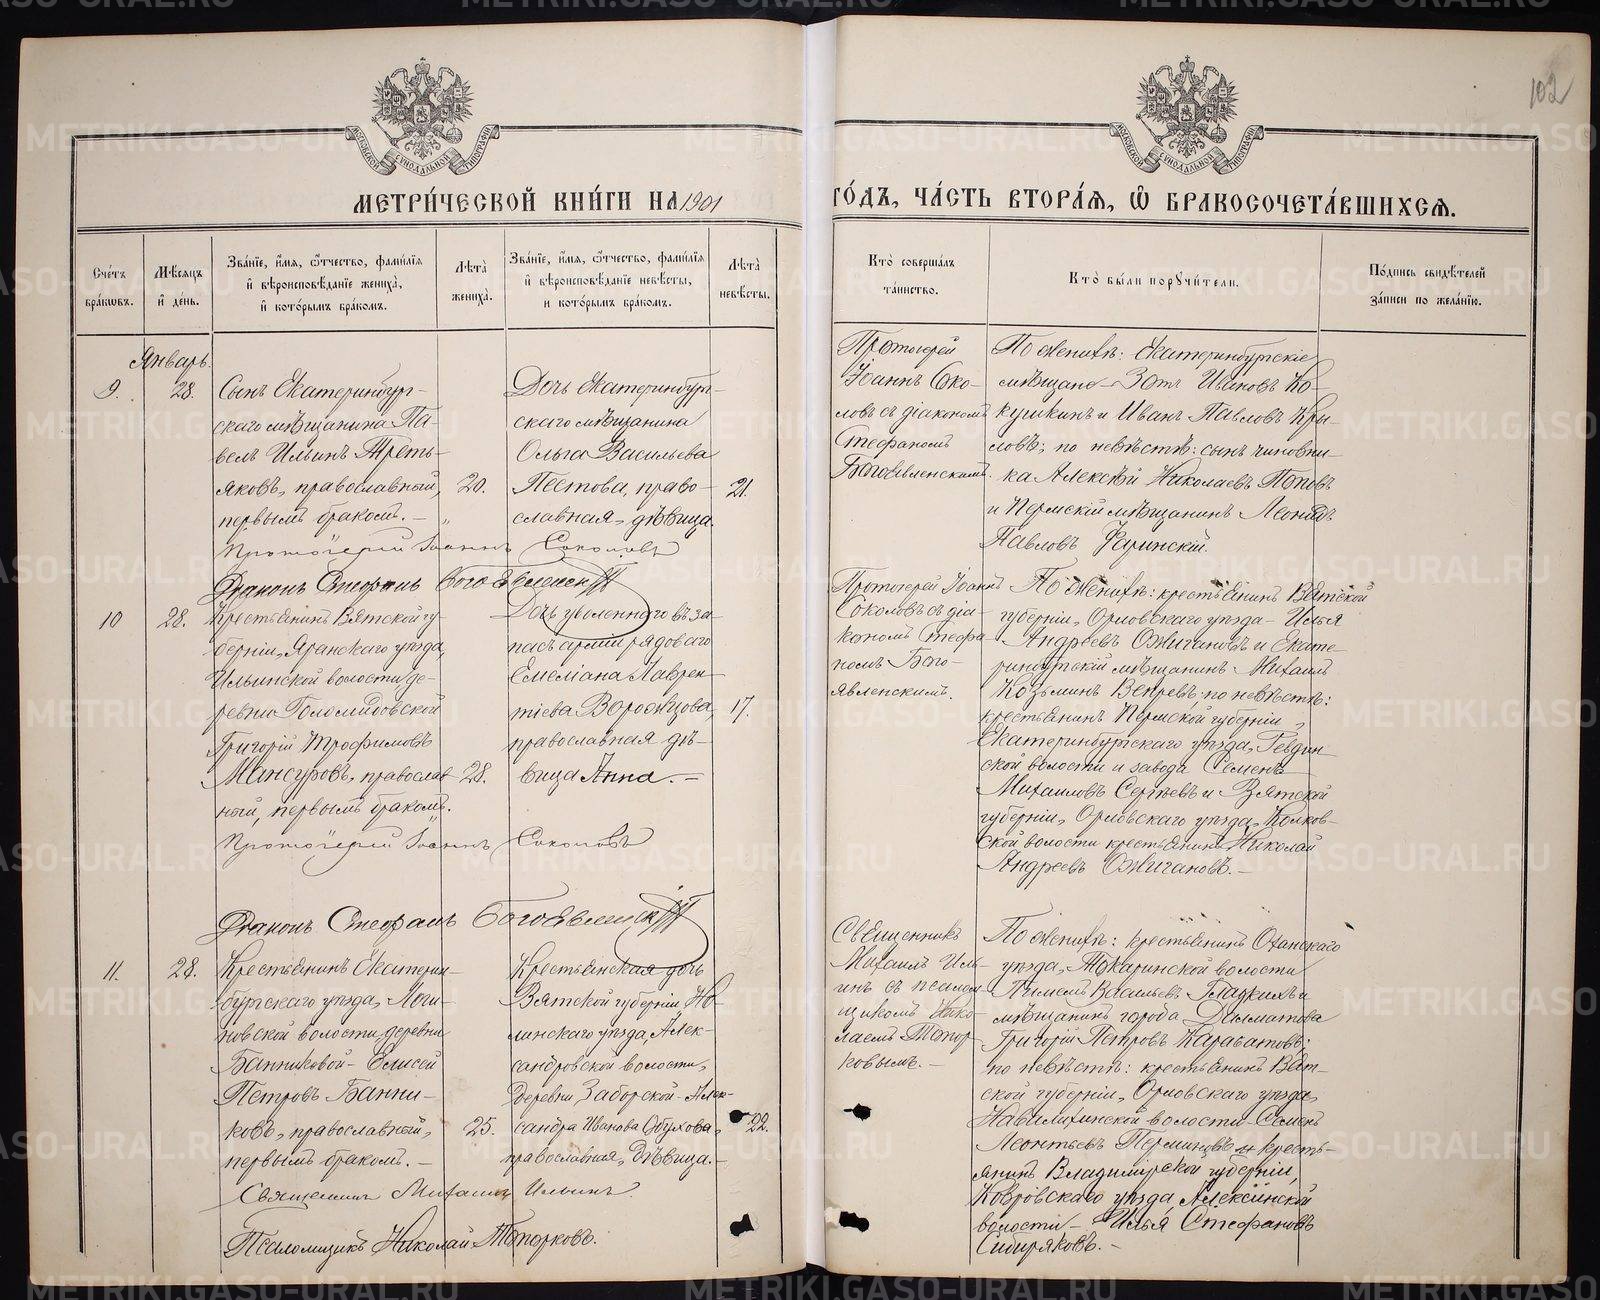 102
МОСКОВСКОЙ СѴНОДАЛЬНОЙ ТИПОГРАФІИ
МОСКОВСКОЙ СѴНОДАЛЬНОЙ ТИПОГРАФІИ
МЕТРИ́ЧЕСКОЙ КНИ́ГИ НА 1901
ГО́ДЪ, ЧА́СТЬ ВТОРА́Я, Ѡ БРАКОСОЧЕТА́ВШИХСЯ.
Сче́тъ бра́ковъ.
Мѣ́сяцъ и́ де́нь.
Зва́нїе, и́мя, ѻ҆́тчество, фами́лїя и́ вѣроисповѣ́данїе жениха̀, и́ кото́рымъ бра́комъ.
Лѣ́та̀ жениха̀.
Зва́нїе, и́мя, ѻ҆́тчество, фами́лїя и́ вѣроисповѣ́данїе невѣ́сты, и кото́рымъ бра́комъ.
Лѣ́та̀ невѣ́сты.
Кто̀ соверша́лъ та́инство.
Кто̀ бы́ли порꙋчи́тели.
По́дпись свидѣ́телей за́писи по жела́нїю.
Январь
9.
28.
Сынъ Екатеринбург-
скаго мѣщанина Па-
велъ Ильинъ Треть-
яковъ, православный,
первымъ бракомъ. —
20.
Дочь Екатеринбург-
скаго мѣщанина
Ольга Васильева
Пестова, право-
славная, дѣвица.
21.
Протоіерей
Іоаннъ Соко-
ловъ съ діакономъ
Стефаномъ
Богоявленскимъ.
По женихѣ: Екатеринбургскіе
мѣщане — Зотъ Ивановъ Ко-
кушкинъ и Иванъ Павловъ Кры-
ловъ; по невѣстѣ: сынъ чиновни-
ка Алексѣй Николаевъ Поповъ
и Пермскій мѣщанинъ Леонидъ
Павловъ
Протоіерей Іоаннъ Соколовъ
Діаконъ Стефанъ Богоявленскій
10
28.
Крестьянинъ Вятской гу-
берніи, Яранскаго уѣзда,
Ильинской волости, де-
ревни
Григорій Трофимовъ
Мансуровъ, православ-
ный, первымъ бракомъ.
28.
Дочь уволеннаго въ за-
пасъ арміи рядоваго
Емеліана Лаврен-
тіева Ворожцова,
православная дѣ-
вица Анна. —
17.
Протоіерей Іоаннъ
Соколовъ съ діа-
кономъ Стефа-
номъ Бого-
явленскимъ.
По женихѣ: крестьянинъ Вятской
губерніи, Орловскаго уѣзда — Илья
Андреевъ Ожигановъ и Екате-
ринбургскій мѣщанинъ Михаилъ
Козьминъ Вепревъ; по невѣстѣ:
крестьянинъ Пермской губерніи,
Екатеринбургскаго уѣзда, Ревдин-
ской волости и завода Семенъ
Михаиловъ Сергѣевъ и Вятской
губерніи, Орловскаго уѣзда,
ской волости крестьянинъ Николай
Андреевъ Ожигановъ. —
Протоіерей Іоаннъ Соколовъ
Діаконъ Стефанъ Богоявленскій
11.
28.
Крестьянинъ Екатерин-
бургскаго уѣзда, Логи-
новской волости, деревни
Банниковой — Елисей
Петровъ Банни-
ковъ, православный,
первымъ бракомъ. —
25.
Крестьянская дочь
Вятской губерніи, Но-
линскаго уѣзда, Алек-
сандровской волости,
деревни Заборской — Алек-
сандра Иванова Обухова,
православная, дѣвица. —
22.
Священникъ
Михаилъ Иль-
инъ съ псалом-
щикомъ Нико-
лаемъ Топор-
ковымъ. —
По женихѣ: крестьянинъ Оханскаго
уѣзда, Токаринской волости
Пименъ Васильевъ Гладкихъ и
мѣщанинъ города Далматова
Григорій Петровъ
по невѣстѣ: крестьянинъ Вят-
ской губерніи, Орловскаго уѣзда,
волости — Семенъ
Леонтьевъ и кресть-
янинъ Владимірской губерніи,
Ковровскаго уѣзда, Алексинской
волости — Илья Стефановъ
Сибиряковъ. —
Священникъ Михаилъ Ильинъ.
Псаломщикъ Николай Топорковъ.
METRIKI.GASO-URAL.RU